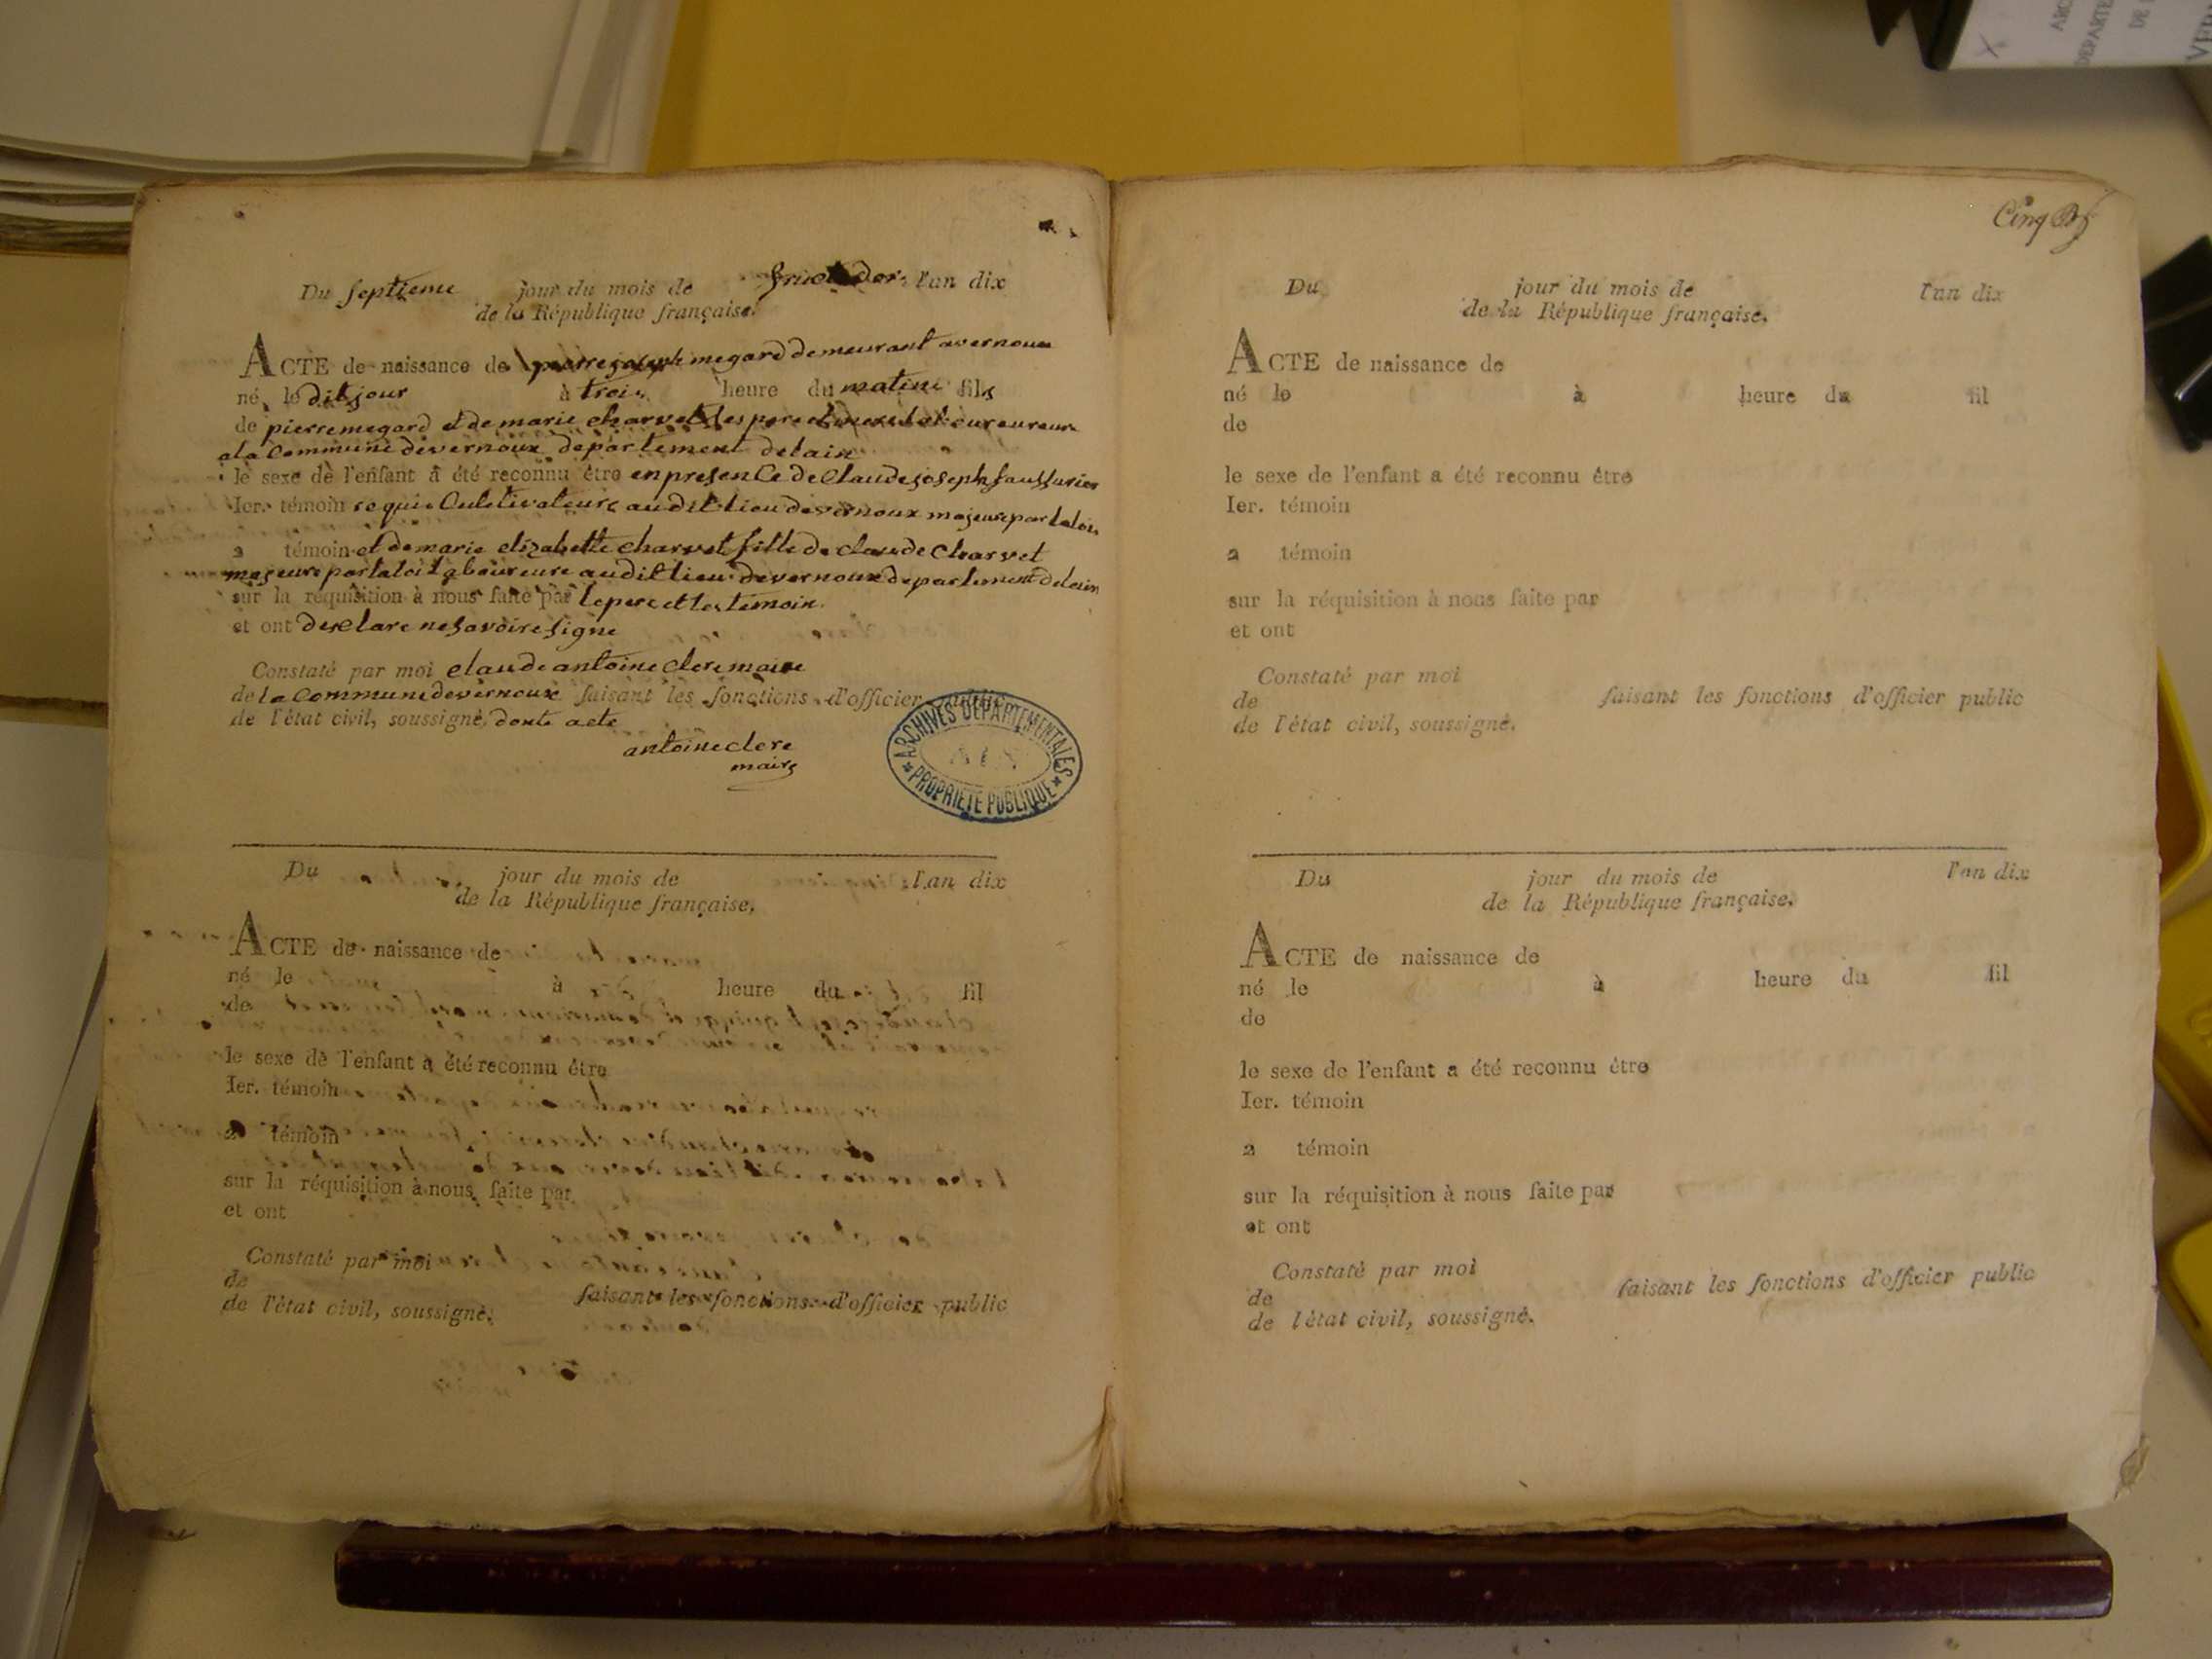 ARC
DEPARTE
DE L
VER
Cinq
Du septieme jour du mois de fructidor l'an dix
de la République française.
ACTE de naissance de pierre joseph megard demeurant a vernoux
né le dit jour à trois heure du matine fils
de pierre megard et de marie charvet les pere et mere laboureureure
a la Commune devernoux departement delain
le sexe de l'enfant a été reconnu être en presence de Claude joseph
Ier. témoin requis Culetivateure audit lieu devernoux majeure par la loix
2 témoin et de marie elizabette charvet fille de claude Charvet
majeure par la loi laboureure audit lieu devernoux departement delain
sur la réquisition à nous faite par le pere et les temoin.
et ont desclare ne savoire signe
Constaté par moi claude antoine clere maire
de la Commune devernoux faisant les fonctions d'officier public
de l'état civil, soussigné, donte acte
antoine clere
maire
ARCHIVES DÉPARTEMENTALES
AIN
PROPRIÉTÉ PUBLIQUE
Du jour du mois de l'an dix
de la République française.
ACTE de naissance de
né le à heure du fil
de
le sexe de l'enfant a été reconnu être
Ier. témoin
2 témoin
sur la réquisition à nous faite par
et ont
Constaté par moi
de faisant les fonctions d'officier public
de l'état civil, soussigné.
Du jour du mois de l'an dix
de la République française.
ACTE de naissance de
né le à heure du fil
de
le sexe de l'enfant a été reconnu être
Ier. témoin
2 témoin
sur la réquisition à nous faite par
et ont
Constaté par moi
de faisant les fonctions d'officier public
de l'état civil, soussigné.
Du jour du mois de l'an dix
de la République française.
ACTE de naissance de
né le à heure du fil
de
le sexe de l'enfant a été reconnu être
Ier. témoin
2 témoin
sur la réquisition à nous faite par
et ont
Constaté par moi
de faisant les fonctions d'officier public
de l'état civil, soussigné.